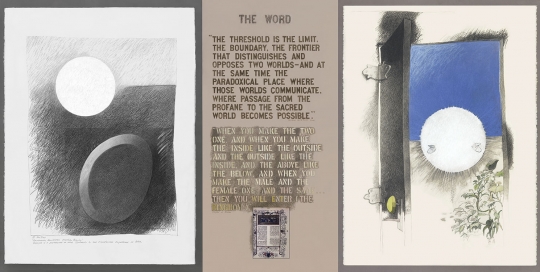 THE WORD
"THE THRESHOLD IS THE LIMIT,
THE BOUNDARY, THE FRONTIER
THAT DISTINGUISHES AND
OPPOSES TWO WORLDS—AND AT
THE SAME TIME THE
PARADOXICAL PLACE WHERE
THOSE WORLDS COMMUNICATE,
WHERE PASSAGE FROM THE
PROFANE TO THE SACRED
WORLD BECOMES POSSIBLE."
"WHEN YOU MAKE THE TWO
ONE, AND WHEN YOU MAKE
THE INSIDE LIKE THE OUTSIDE
AND THE OUTSIDE LIKE THE
INSIDE, AND THE ABOVE LIKE
THE BELOW, AND WHEN YOU
MAKE THE MALE AND THE
FEMALE ONE AND THE
THEN YOU WILL ENTER THE